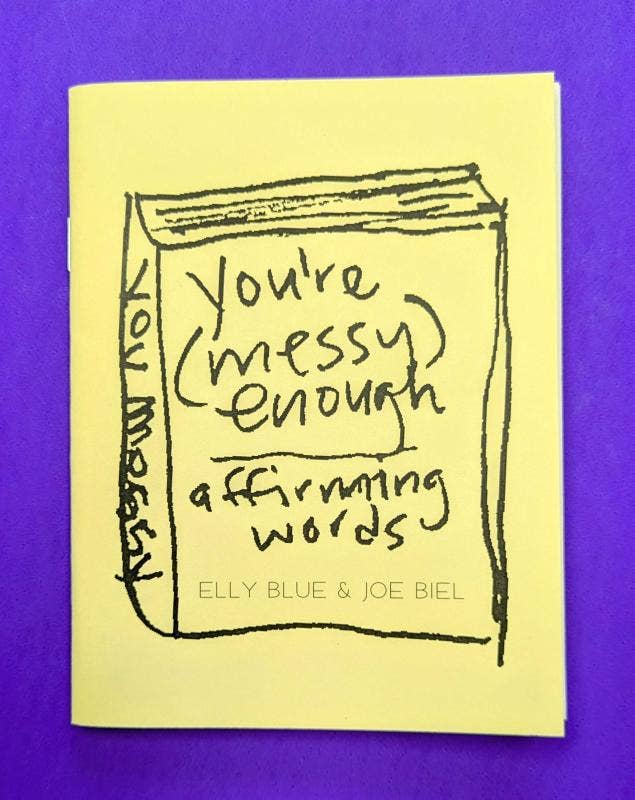 you're
(messy)
enough
affirming
words
ELLY BLUE & JOE BIEL